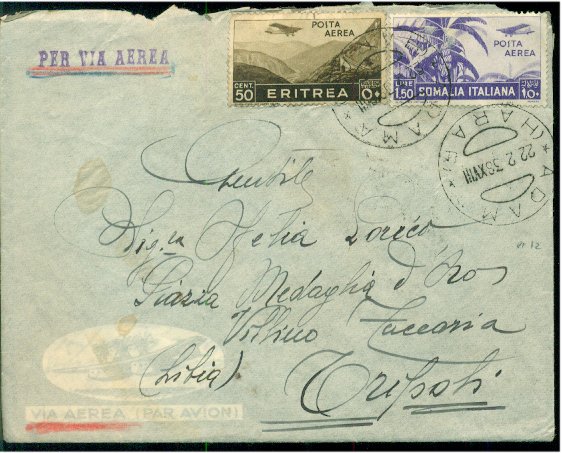 PER VIA AEREA
POSTA AEREA
CENT. 50
ERITREA
POSTA AEREA
LIRE 1.50
SOMALIA ITALIANA
ADAMA
(HARAR)
22.2.39 XVII
Gentile
Sig.ra
Piazza Medaglia d'Oro
Villino Zaccaria
(Libia) Tripoli
VIA AEREA (PAR AVION)